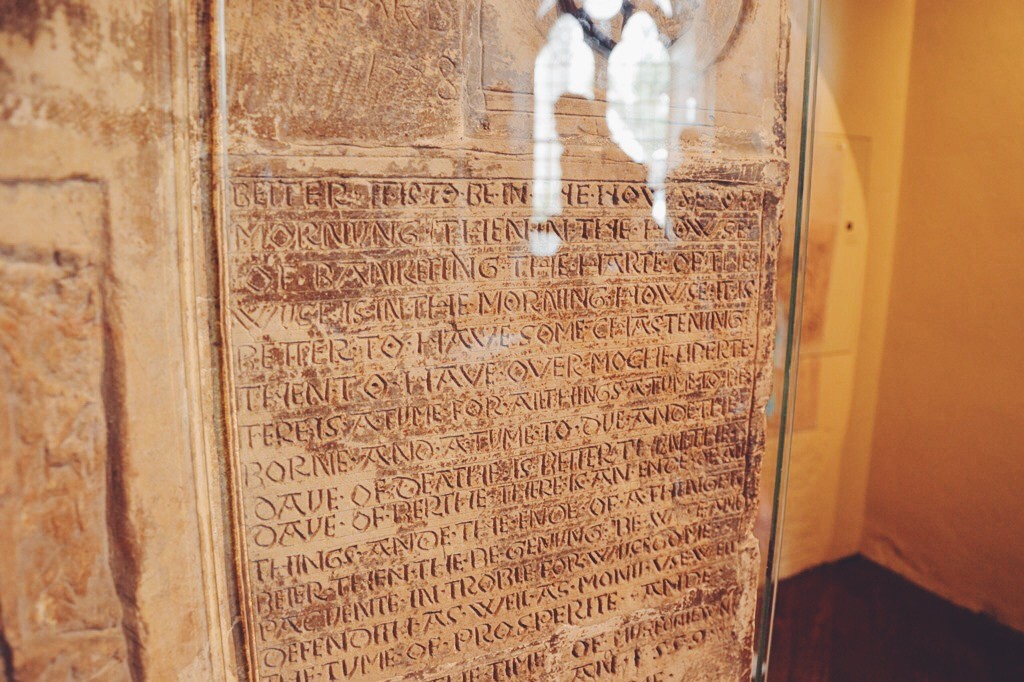 8
BETTER · IT IS TO BE · IN · THE · HOWSE OF
MORNUNG · THEN IN · THE · HOWSE
OF BANKETING · THE HARTE OF THE
WUSE · IS · IN THE MORNING · HOWSE IT IS
BETTER · TO · HAVE SOME · CHASTENING
THEN TO · HAVE · OVER · MOCHE · LIBERTE ·
TERE IS · A TUME · FOR · AL THINGS · A TUME · TO BE
BORNE · AND · A TUME · TO · DUE · ANDE THE
DAUE · OF DEATHE IS BETTER THEN THE
DAUE · OF BERTHE · THERE IS AN · ENDE OF AL
THINGS · ANDE · THE ENDE OF A THINGE IS
BETER · THEN · THE BEGENING · BE WUSE AND
PACUENTE · IN · TROBLE FOR WUSDOME
DEFENDTH · AS WEL AS · MONI · USE WEL
THE TUME · OF · PROSPERITE · ANDE
THE TIME · OF
AN · 1559